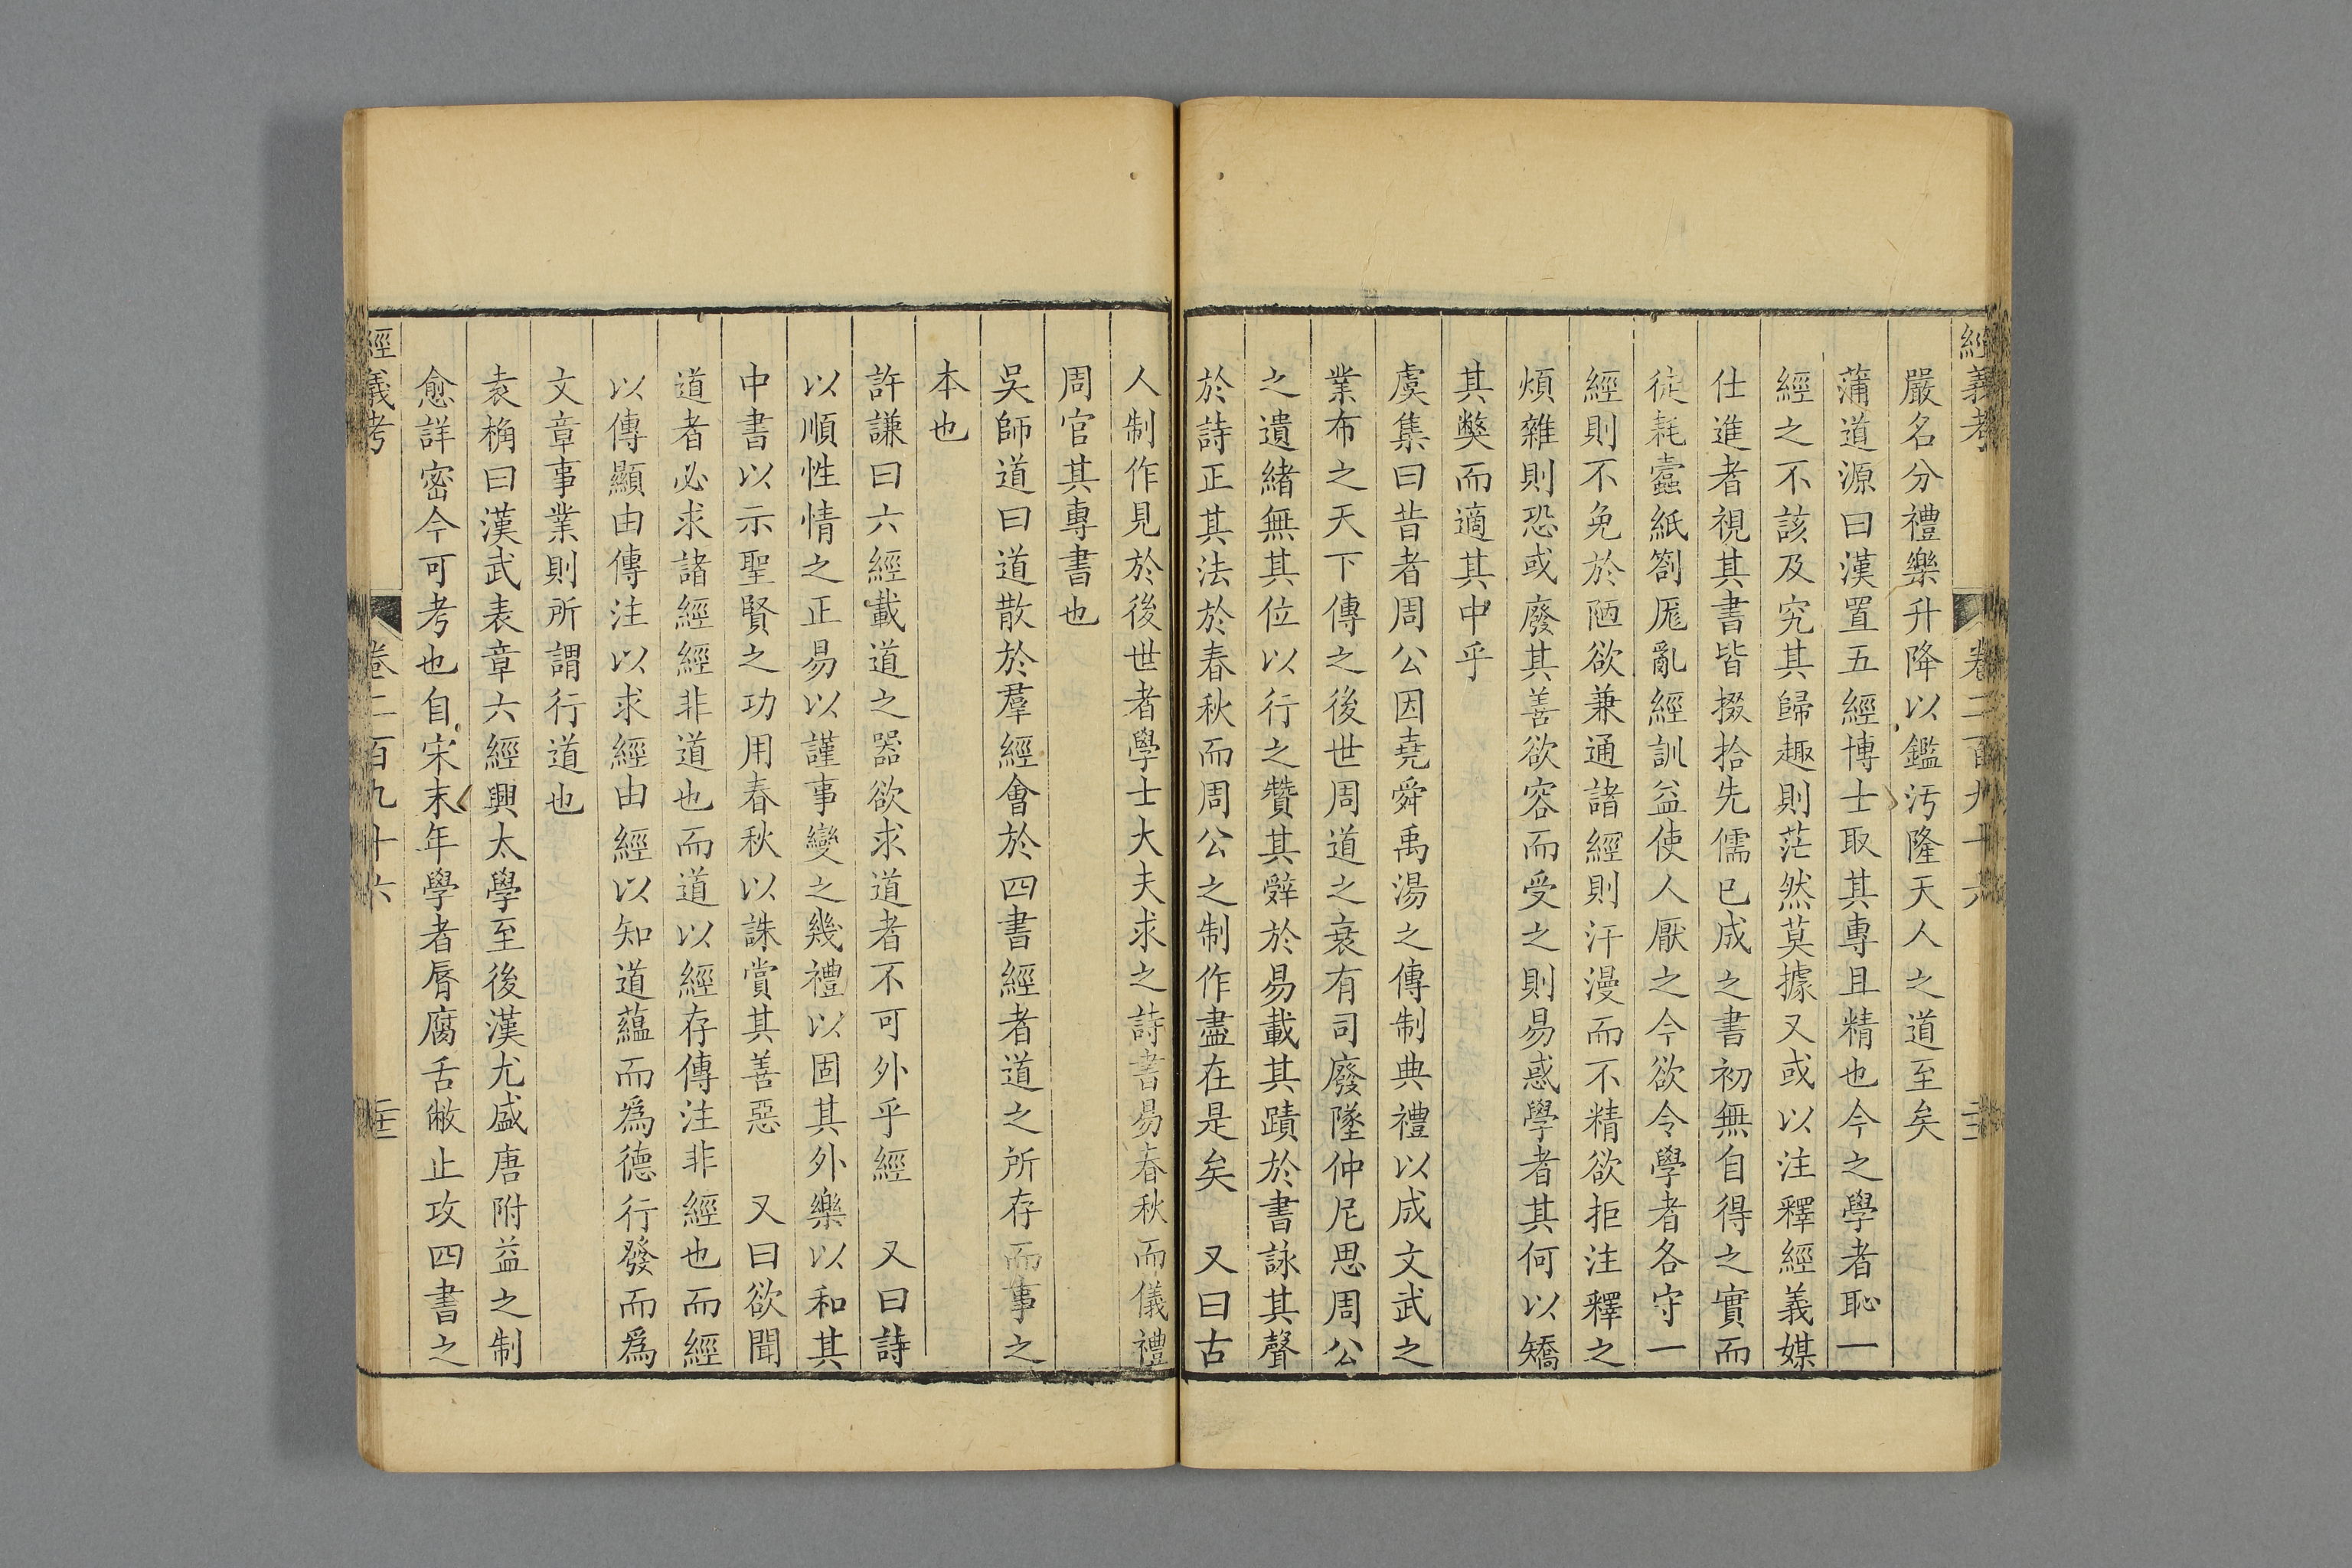 經義考 卷二百九十六
嚴名分禮樂升降以鑑汚隆天人之道至矣
蒲道源曰漢置五經博士取其專且精也今之學者恥一
經之不該及究其歸趣則茫然莫據又或以注釋經義媒
仕進者視其書皆掇拾先儒已成之書初無自得之實而
徒耗蠹紙劄厖亂經訓益使人厭之今欲令學者各守一
經則不免於陋欲兼通諸經則汗漫而不精欲拒注釋之
煩雜則恐或廢其善欲容而受之則易惑學者其何以矯
其獘而適其中乎
虞集曰昔者周公因堯舜禹湯之傳制典禮以成文武之
業布之天下傳之後世周道之衰有司廢墜仲尼思周公
之遺緖無其位以行之贊其辭於易載其蹟於書詠其聲
於詩正其法於春秋而周公之制作盡在是矣 又曰古
人制作見於後世者學士大夫求之詩書易春秋而儀禮
周官其專書也
吳師道曰道散於羣經會於四書經者道之所存而事之
本也
許謙曰六經載道之器欲求道者不可外乎經 又曰詩
以順性情之正易以謹事變之幾禮以固其外樂以和其
中書以示聖賢之功用春秋以誅賞其善惡 又曰欲聞
道者必求諸經經非道也而道以經存傳注非經也而經
以傳顯由傳注以求經由經以知道蘊而爲德行發而爲
文章事業則所謂行道也
袁桷曰漢武表章六經興太學至後漢尤盛唐附益之制
愈詳密今可考也自宋末年學者脣腐舌敝止攻四書之
經義考 卷二百九十六